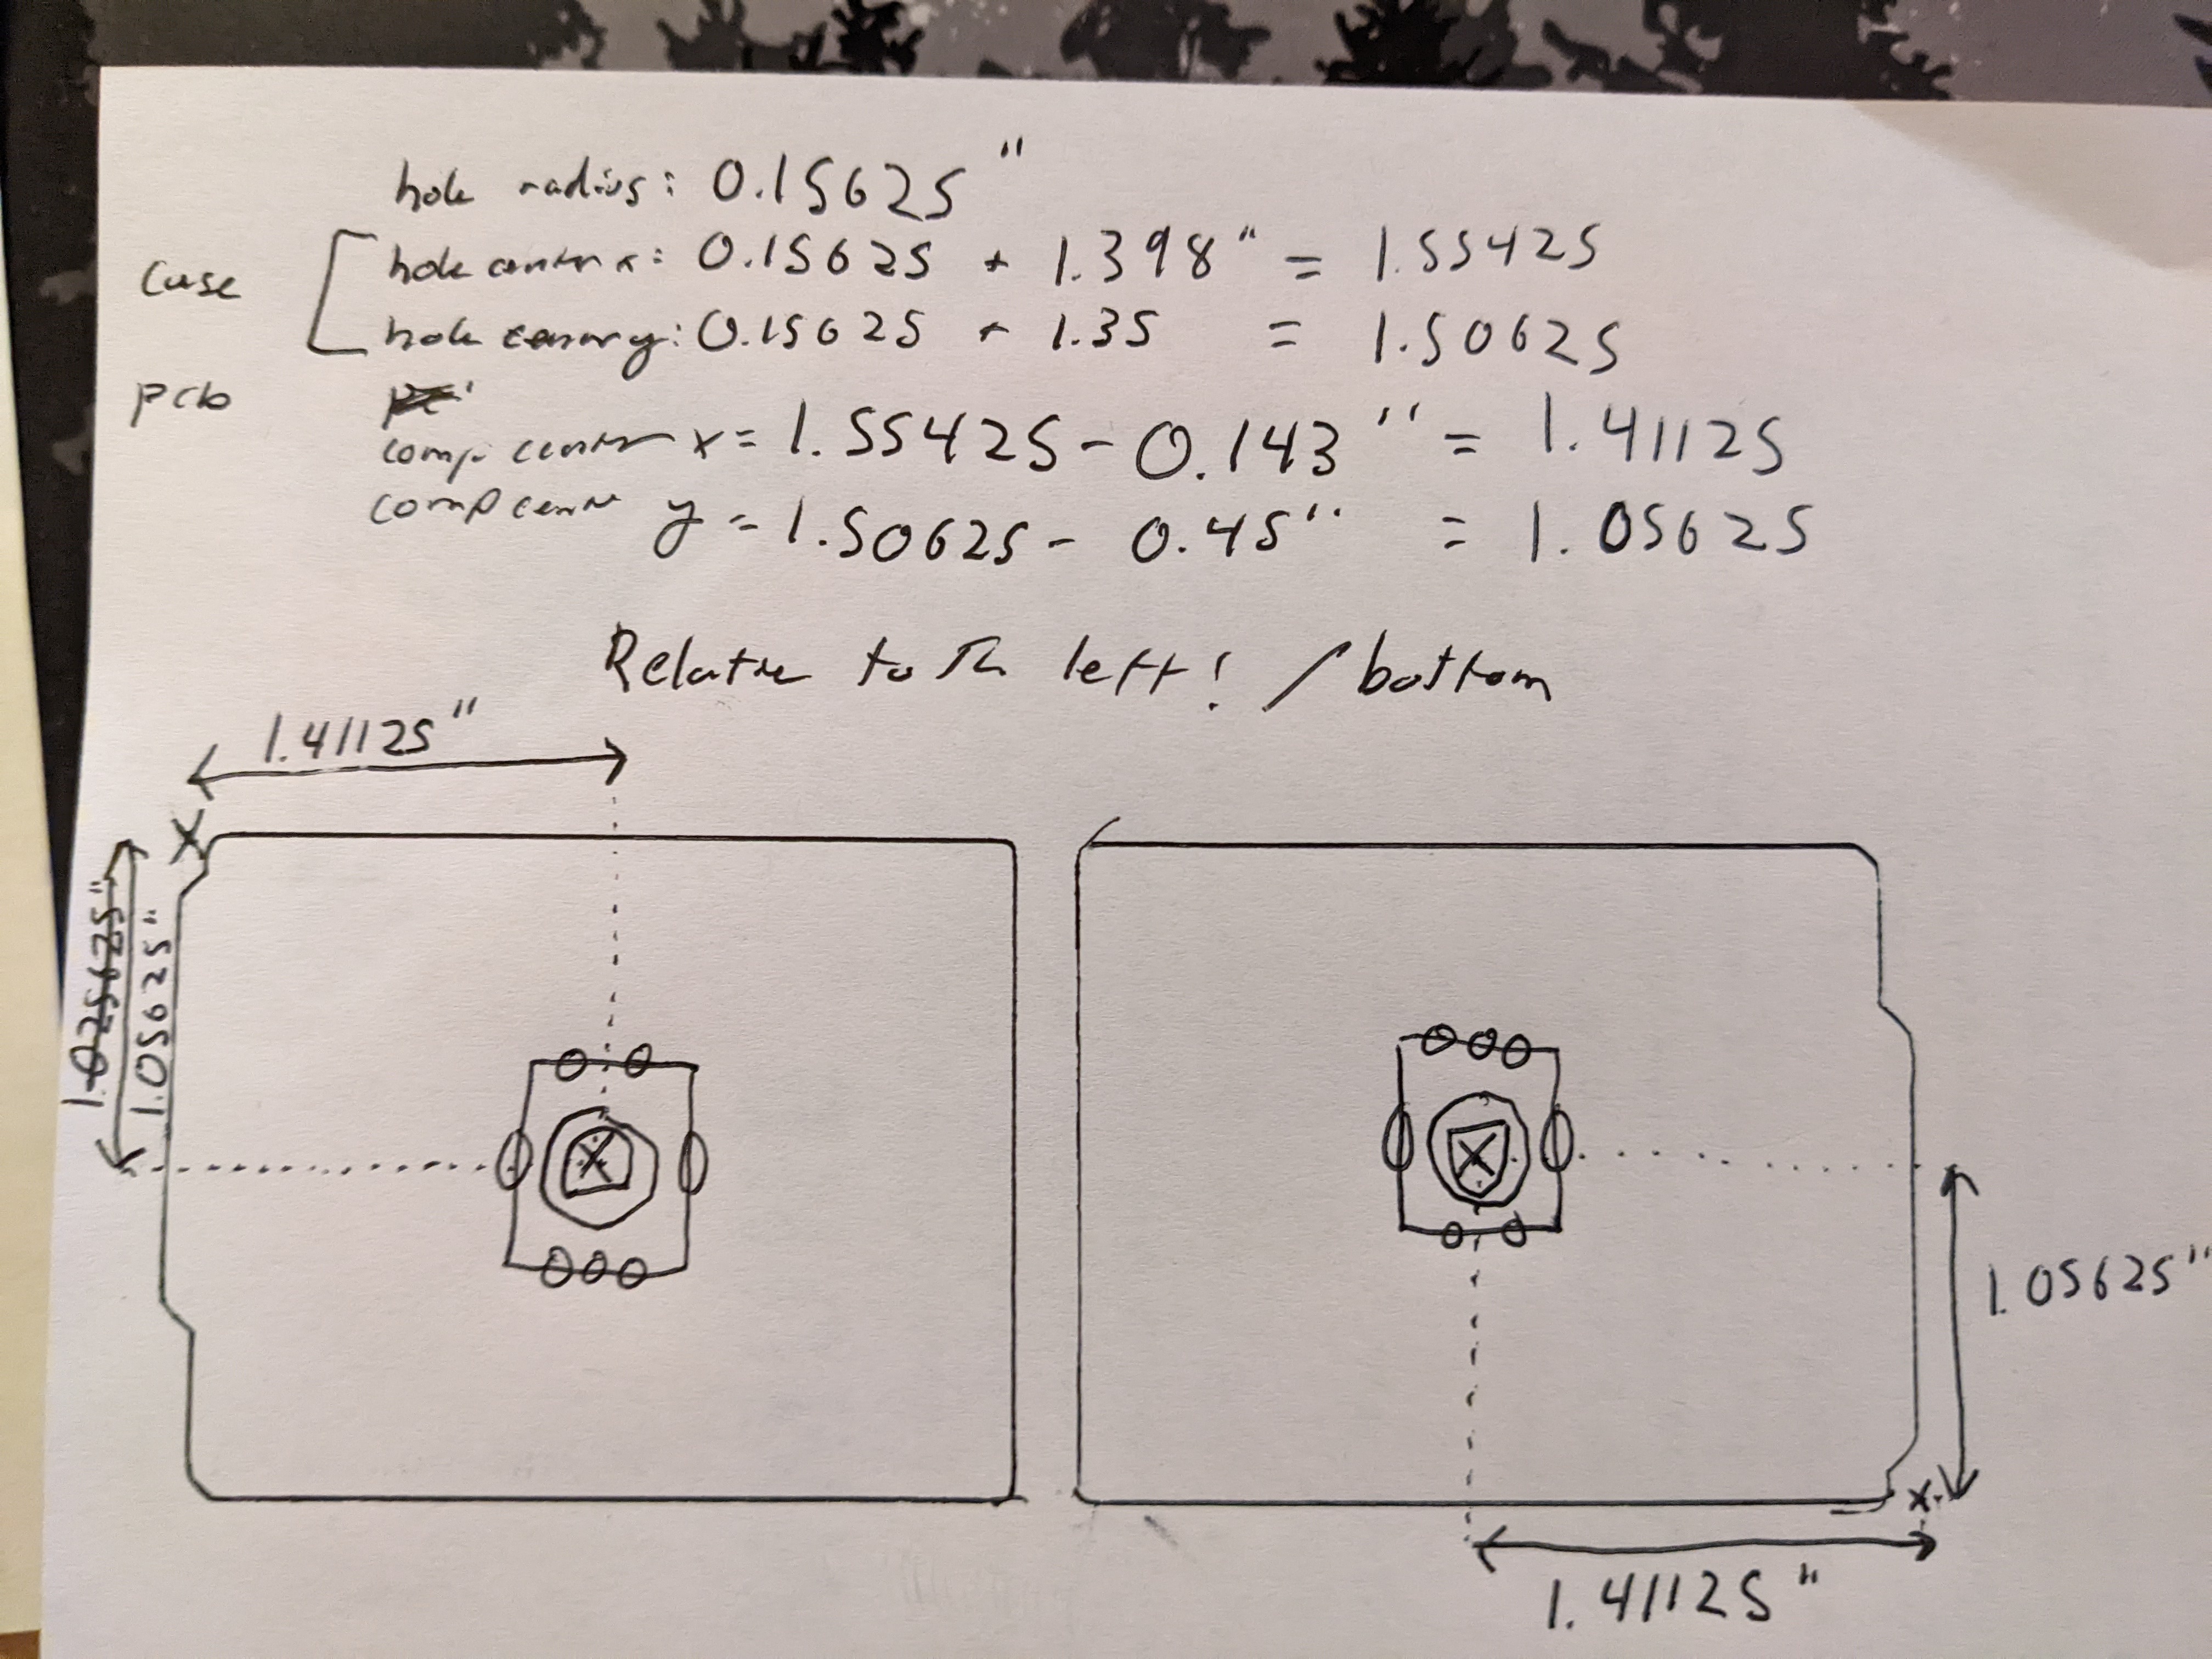 hole radius: 0.15625"
case
hole center x: 0.15625 + 1.398" = 1.55425
hole center y: 0.15625 + 1.35 = 1.50625
pcb
comp. center x = 1.55425 - 0.143" = 1.41125
comp center y = 1.50625 - 0.45" = 1.05625
Relative to the left! / bottom
1.41125"
X
1.025625"
1.05625"
X
X
1.05625"
x
1.41125"